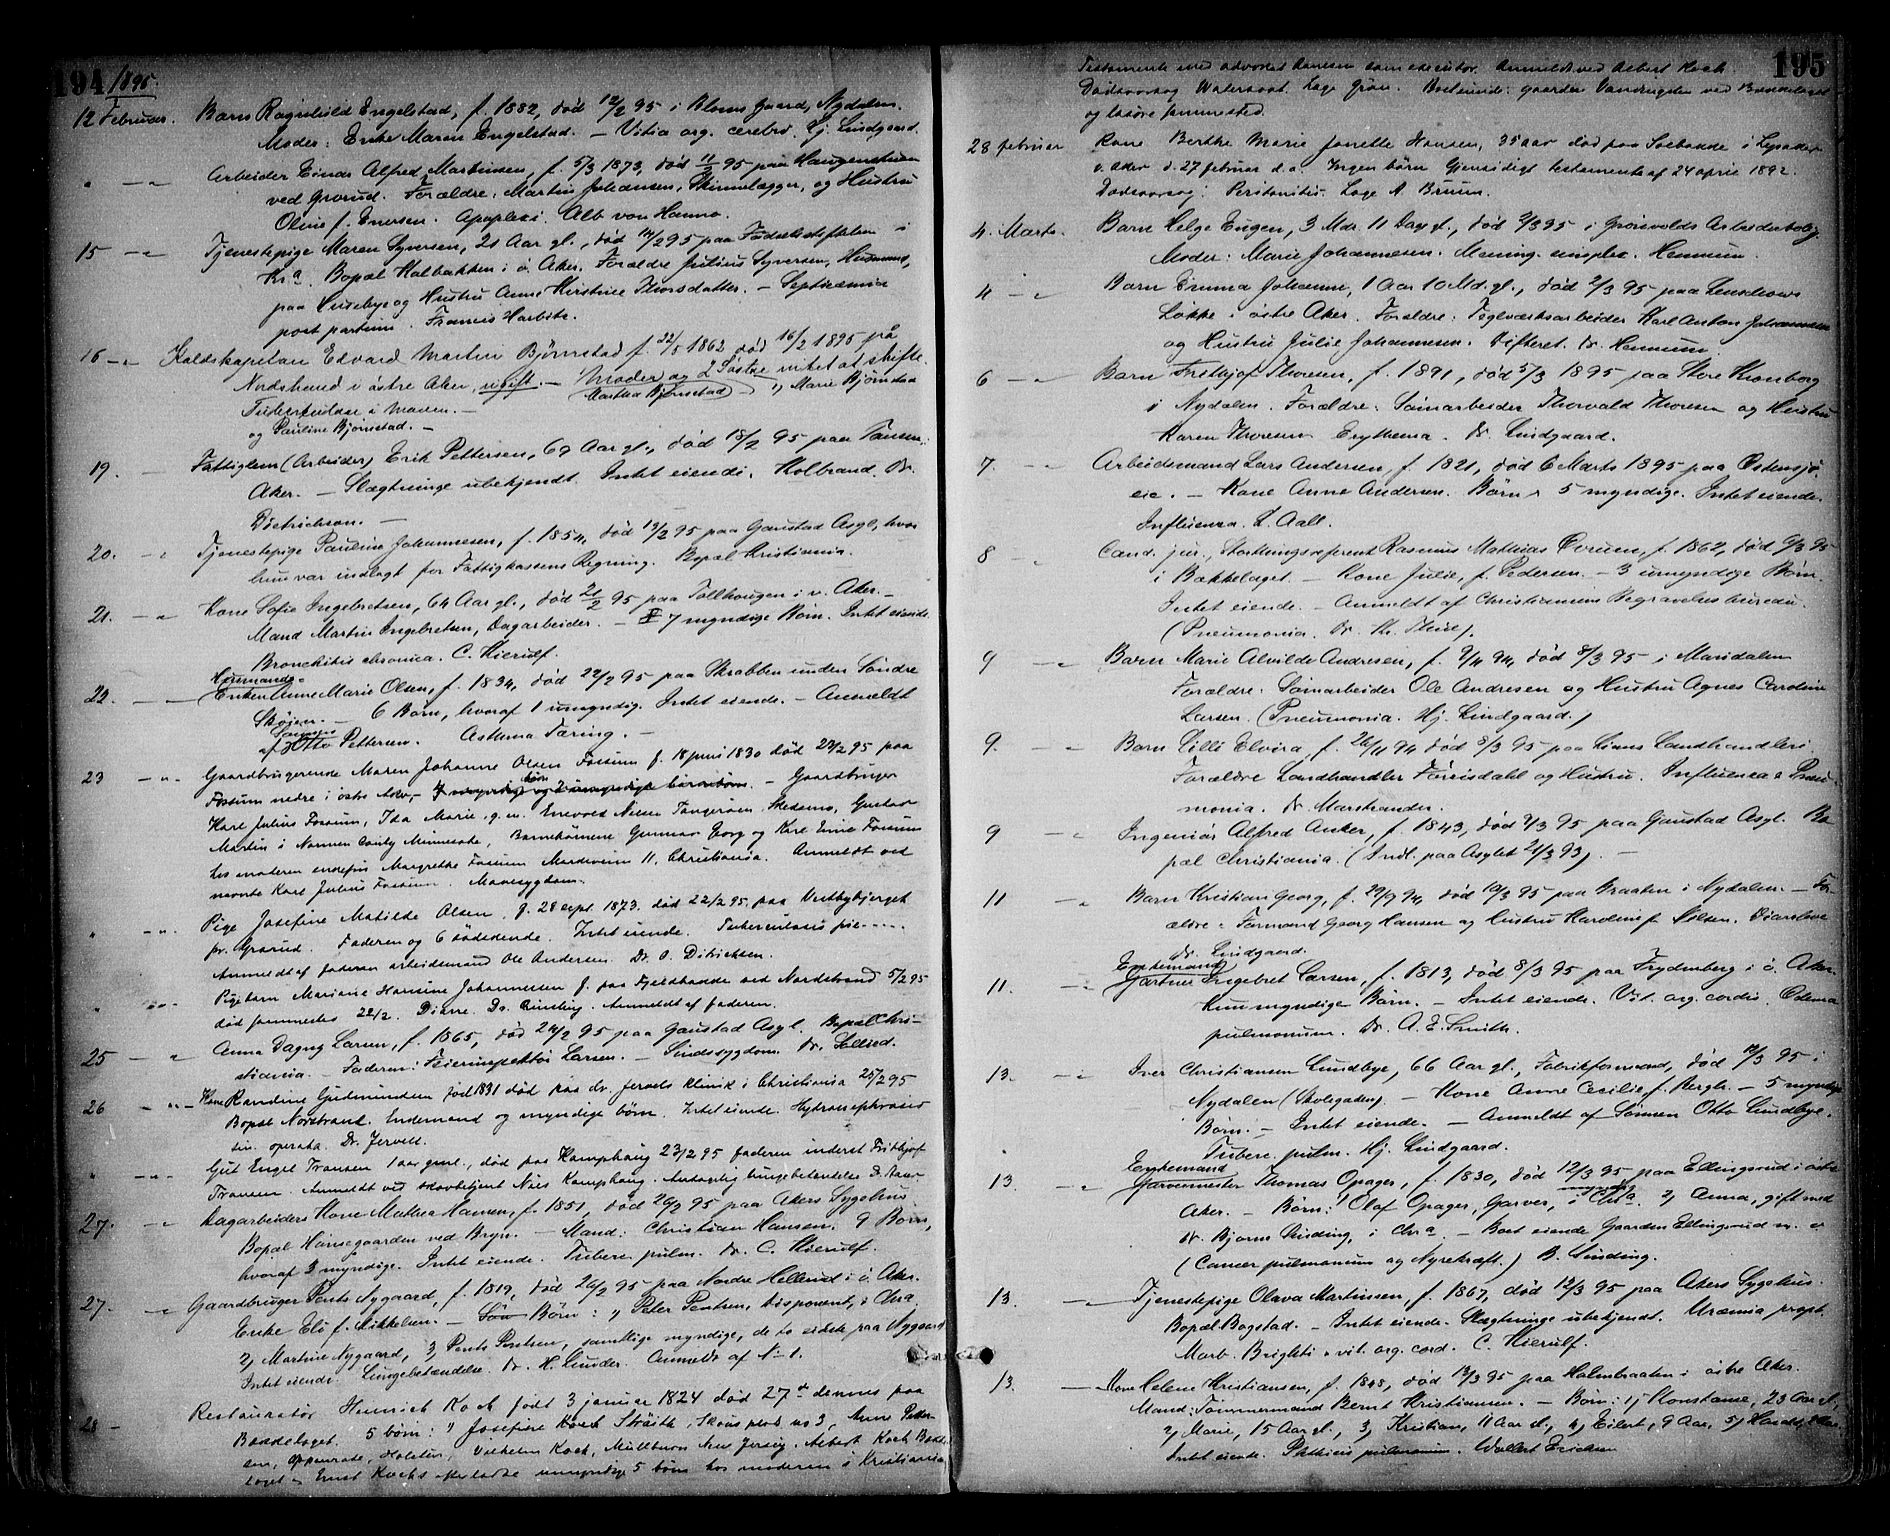 194 1895
12 Februar. Barn Ragnhild Engelstad, f. 1882, død 12/2 95 i Bloms Gaard, Nydalen.
Moder: Enke Maren Engelstad. – Vitia org. cerebri. Hj. Lindgaard.
" — " Arbeider Einar Alfred Martinsen, f. 5/3 1873, død 11/2 95 paa Haugenstuen
ved Grorud. Forældre: Martin Johansen, Skinnelægger, og Hustru
Oline f. Enersen. Apoplexi. Alb. von Hanno.
15 — " Tjenestepige Maren Syversen, 21 Aar gl., død 14/2 95 paa Fødselsstiftelsen i
Kr.a. Bopæl Kalbakken i ø. Aker. Forældre Julius Syversen, Husmand,
paa Husebye og Hustru Anne Kirstine Thorsdatter. – Septicæmia
post partum. Francis Harbitz.
16 — " Koldskapetan Edvard Martin Bjørnstad f. 22/5 1862 død 16/2 1895 på
Nordstrand i østre Aker, ugift. – Moder og 2 Søstre intet at skifte.
Martha Bjørnstad " Marie Bjørnstad
Tuberkulose i Maven. –
og Pauline Bjørnstad. –
19. — Fattiglem (Arbeider) Erik Pettersen, 69 Aar gl., død 18/2 95 paa Tonsen,
Aker. – Slægtninge ubekjendt. Intet eiende. Kolbrand. Dr.
Dietrichson. –
20. — " Tjenestepige Pauline Johannesen, f. 1854, død 19/2 95 paa Gaustad Asyl, hvor
hun var indlagt for Fattigkassens Regning. Bopæl Kristiania.
21. — " Kone Sofie Ingebretsen, 64 Aar gl., død 21/2 95 paa Tollhougen i v. Aker. –
Mand Martin Ingebretsen, Dagarbeider. – 7 myndige Børn. Intet eiende.
Bronchitis chronica. C. Hierulf.
Husmands-
22. — Enken Anne Marie Olsen, f. 1834, død 22/2 95 paa Skrabben under Søndre
Skøien. – 6 Børn, hvoraf 1 umyndig. Intet eiende. – Anmeldt
af Sønnen Otto Pettersen. Asthma Tæring. –
23 — " Gaardbrugerenke Maren Johanne Olsen Fossum f. 18 juni 1830 død 23/2 95 paa
Fossum nedre i østre Aker, – børn og 2 umyndige børnebørn. – Gaardbruger
Karl Julius Fossum, Ida Marie, g. m. Enevold Nilsen Tangeraas Skedsmo, Gustav
Martin i Norman County Minnesota, Barnebørnene Gunnar Georg og Karl Einar Fossum
hos moderen enkefru Margrethe Fossum Mardeveien 11, Christiania. Anmeldt ved
nævnte Karl Julius Fossum. Mavesygdom.
" — " Pige Josefine Matilde Olsen f. 28 sept. 1873. død 22/2 95. paa Vestbybjerget
pr. Grorud. Faderen og 6 sødskende. Intet eiende. Tuberculosis
Anmeldt af faderen arbeidsmand Ole Andersen Dr. O. Ditrichsen.
" — " Pigebarn Mariane Hansine Johannessen f. paa Fjeldhadde ved Nordstrand 5/2 95
død sammesteds 22/2. Diarre. Dr. Anmeldt af faderen.
25 — " Anna Dagny Larsen, f. 1865, død 24/2 95 paa Gaustad Asyl. Bopæl Chri-
stiania. – Faderen: Feierinspektør Larsen. – Sindssygdom. Dr. Selled.
26 — " — Kone Randine Gudmundsen født 1831 død paa dr. Jervells klinik i Christiania 25/2 95
Bopæl Nordstrand. Enkemand og myndige børn. Intet eiende. Hydronephrosis
sin. operata. Dr. Jervell.
" — " — Gut Engel Fransen 1 aar gml., død paa Kamphaug 23/2 95 faderen inderst Frithjof
Fransen. Anmeldt ved skovbetjent Nils Kamphaug. Antagelig lungebetændelse
27. — " Dagarbeiders Kone Mathea Hansen, f. 1851, død 26/2 95 paa Akers Sygehus
Bopæl Hansegaarden ved Bryn. – Mand: Christian Hansen. 9 Børn,
hvoraf 3 myndige. Intet eiende. Tuberc. pulm. Dr. C. Hierulf.
27. — " Gaardbruger Pents Nygaard, f. 1819, død 26/2 95 paa Nordre Hellerud i ø. Aker.
Enke Eli f. Mikkelsen. – Børn: 1) Peter Pentsen, disponent, i Chra.
2) Martine Nygaard, 3) Pents Pentsen, samtlige myndige, de to sidste paa Nygaard
Intet eiende. Lungebetændelse. Dr. H. Anmeldt af No 1.
28 — Restauratør Heinrich Koch født 3 januar 1824 død 27de dennes paa
Bækkelaget. 5 børn: 1) Josefine Koch Skous plads no 3, Anne Peter-
sen, Appenrade, Holsten, Vilhelm Koch, Millburn New Jersey. Albert Koch Bække-
laget. Ernst Kochs efterladte umyndige 5 børn hos moderen i Kristiania
195
Testamente med advokat som executor. Anmeldt ved Albert Koch
Dødsaarsag Watersoot. Læge Grøn. Boet eiende: gaarden ved Bækkelaget
og løsøre sammesteds.
28 februar Kone Berthe Marie Janette Hansen, 35 aar død paa Solbakke i Lysaker
v. Aker d. 27 februar d. a. Ingen børn Gjensidigt testamente af 24 april 1892.
Dødsaarsag: Peritonitis. Læge A Bruun.
4. Marts. Barn Helge Eugen, 3 Mdr. 11 Dag gl., død 2/3 95 i Gøsvolds Arbeiderbolig.
Moder: Marie Johannesen. Mening. simplex. Hennum.
4 — " Barn Emma Johanne, 1 Aar 10 Md. gl., død 2/3 95 paa Lenschows
Løkke i østre Aker. Forældre: Teglværksarbeider Karl Anton Johannesen
og Hustru Julie Johannesen. Difteret. Dr. Hennum.
6 — " Barn Frithjof Thoresen, f. 1891, død 5/3 1895 paa Store Kronborg
i Nydalen. Forældre: Sømarbeider Thorvald Thoresen og Hustru
Karen Thoresen. Erythema. Dr. Lindgaard.
7. — " Arbeidsmand Lars Andersen, f. 1821, død 6 Marts 1895 paa Østensjø
eie. – Kone Anne Andersen. Børn 5 myndige. Intet eiende.
Influenza. L. Aall.
8 — Cand. jur., Storthingsreferent Rasmus Mathias Ovrum, f. 1862, død 6/3 95
i Bækkelaget. – Kone Julie, f. Pedersen. – 3 umyndige Børn.
Intet eiende. – Anmeldt af Christiansens Begravelsesbureau.
(Pneumonia. Dr. Th. Thiis).
9 — " Barn Marie Alvilde Andresen, f. 9/11 94, død 8/3 95 i Maridalen
Forældre: Sømarbeider Ole Andresen og Hustru Agnes Caroline
Larsen. (Pneumonia. Hj. Lindgaard.)
9. — " Barn Lilli Elvira, f. 26/11 94 død 8/3 95 paa Lians Landhandleri.
Forældre Landhandler Føreisdahl og Hustru. Influenza & Pneu-
monia. Dr. Marstrander.
9 — " Ingeniør Alfred Anker, f. 1843, død 7/3 95 paa Gaustad Asyl. Bo-
pæl Christiania. (Indl. paa Asylet 21/3 93). –
11 — " Barn Kristian Georg, f. 29/9 94, død 10/3 95 paa Braaten i Nydalen. – For-
ældre: Formand Georg Hansen og Hustru Hardine f. Nilsen. Diarrhoe
Dr. Lindgaard.
Enkemand
11. — " Gartner Engebret Larsen, f. 1813, død 8/3 95 paa Frydenberg i ø. Aker.
Kun myndige Børn. – Intet eiende. Vit. org. cordis. Ødema
pulmonum. Dr. A. E. Smith.
13. — " Iver Christiansen Lundbye, 66 Aar gl., Fabrikformand, død 12/3 95 i
Nydalen (Skolegaden). – Kone Anne Cecilie f. Bergh. – 5 myndige
Børn. – Intet eiende. – Anmeldt af Sønnen Otto Lundbye.
Tuberc. pulm. Hj. Lindgaard.
Enkemand
13. — " Garvermester Thomas Opager, f. 1830, død 12/3 95 paa Ellingsrud i østre
Aker. – Børn: 1) Olaf Opager, Garver, myndig i Chr.a. 2) Anna, gift med
Dr. Bjørn Sinding, i Chr.a. – Boet eiende Gaarden Ellingsrud
(Cancer pulmonum og Nyrekræft.) B. Sinding.
13. — " Tjenestepige Olava Martinsen, f. 1867, død 12/3 95 paa Akers Sygehus.
Bopæl Bogstad. – Intet eiende. Slægtninge ubekjendt. Uræmia propt.
Morb. Brighti & vit. org. cord. C. Hierulf.
13. — Kone Helene Kristiansen, f. 1848, død 12/3 95 paa Holmbraaten i østre Aker.
Mand: Tømmermand Bernt Kristiansen. – Børn: 1) Konstanse, 23 Aar gl.,
2) Marie, 15 Aar gl., 3) Kristian, 11 Aar gl., 4) Eilert, 9 Aar, 5)
Intet eiende. Phthisis pulmonum. Wollert Ericksen